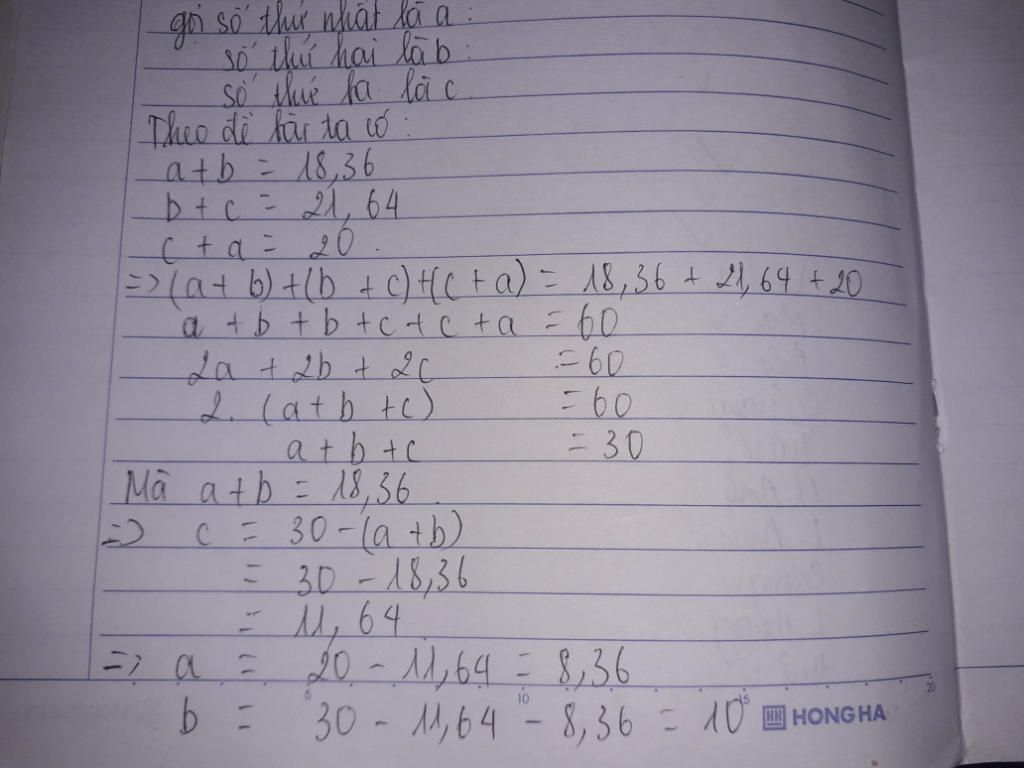 gọi số thứ nhất là a :
số thứ hai là b :
số thứ ba là c
Theo đề bài ta có :
a + b = 18,36
b + c = 21,64
c + a = 20 .
=> (a + b) + (b + c) + (c + a) = 18,36 + 21,64 + 20
a + b + b + c + c + a = 60
2a + 2b + 2c = 60
2. (a + b + c) = 60
a + b + c = 30
Mà a + b = 18,36
=> c = 30 - (a + b)
= 30 - 18,36
= 11,64
=> a = 20 - 11,64 = 8,36
5 10 15 20
b = 30 - 11,64 - 8,36 = 10
HH HONG HA